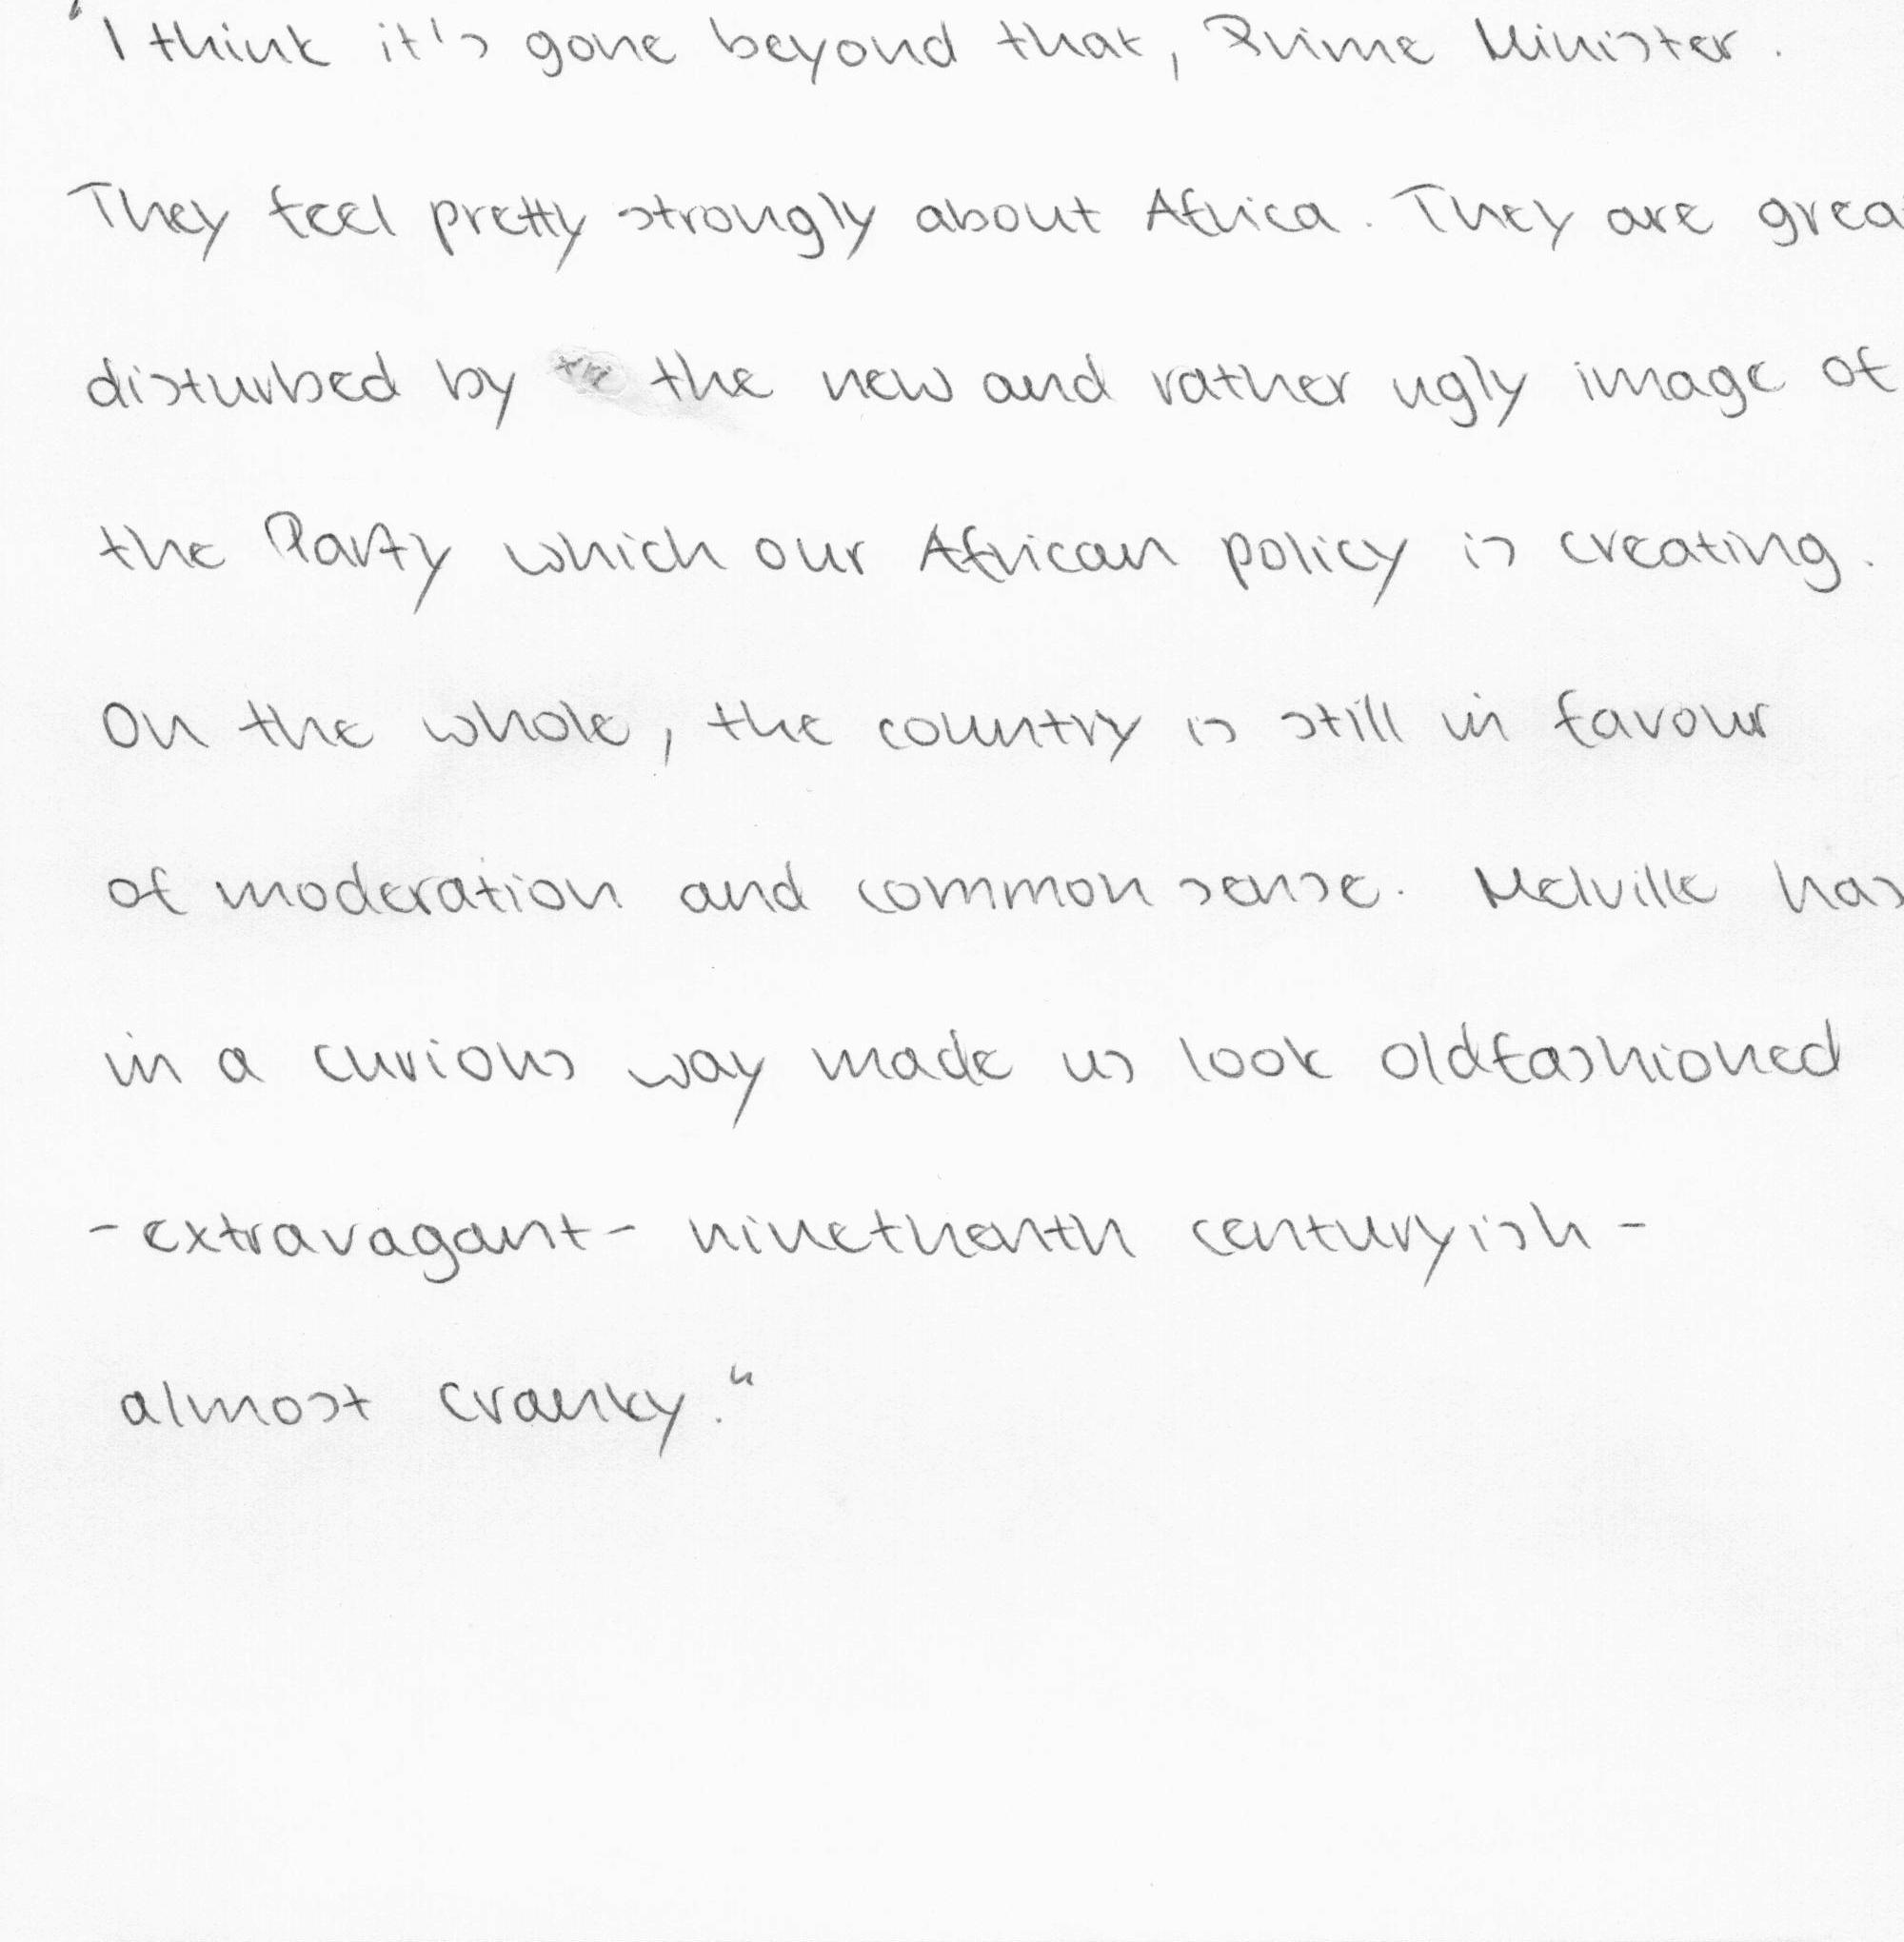 "I think it's gone beyond that, Prime Minister.
They feel pretty strongly about Africa. They are grea
disturbed by the new and rather ugly image of
the Party which our African policy is creating.
On the whole, the country is still in favour
of moderation and common sense. Melville has
in a curious way made us look oldfashioned
- extravagant - ninetheenth centuryish -
almost cranky."